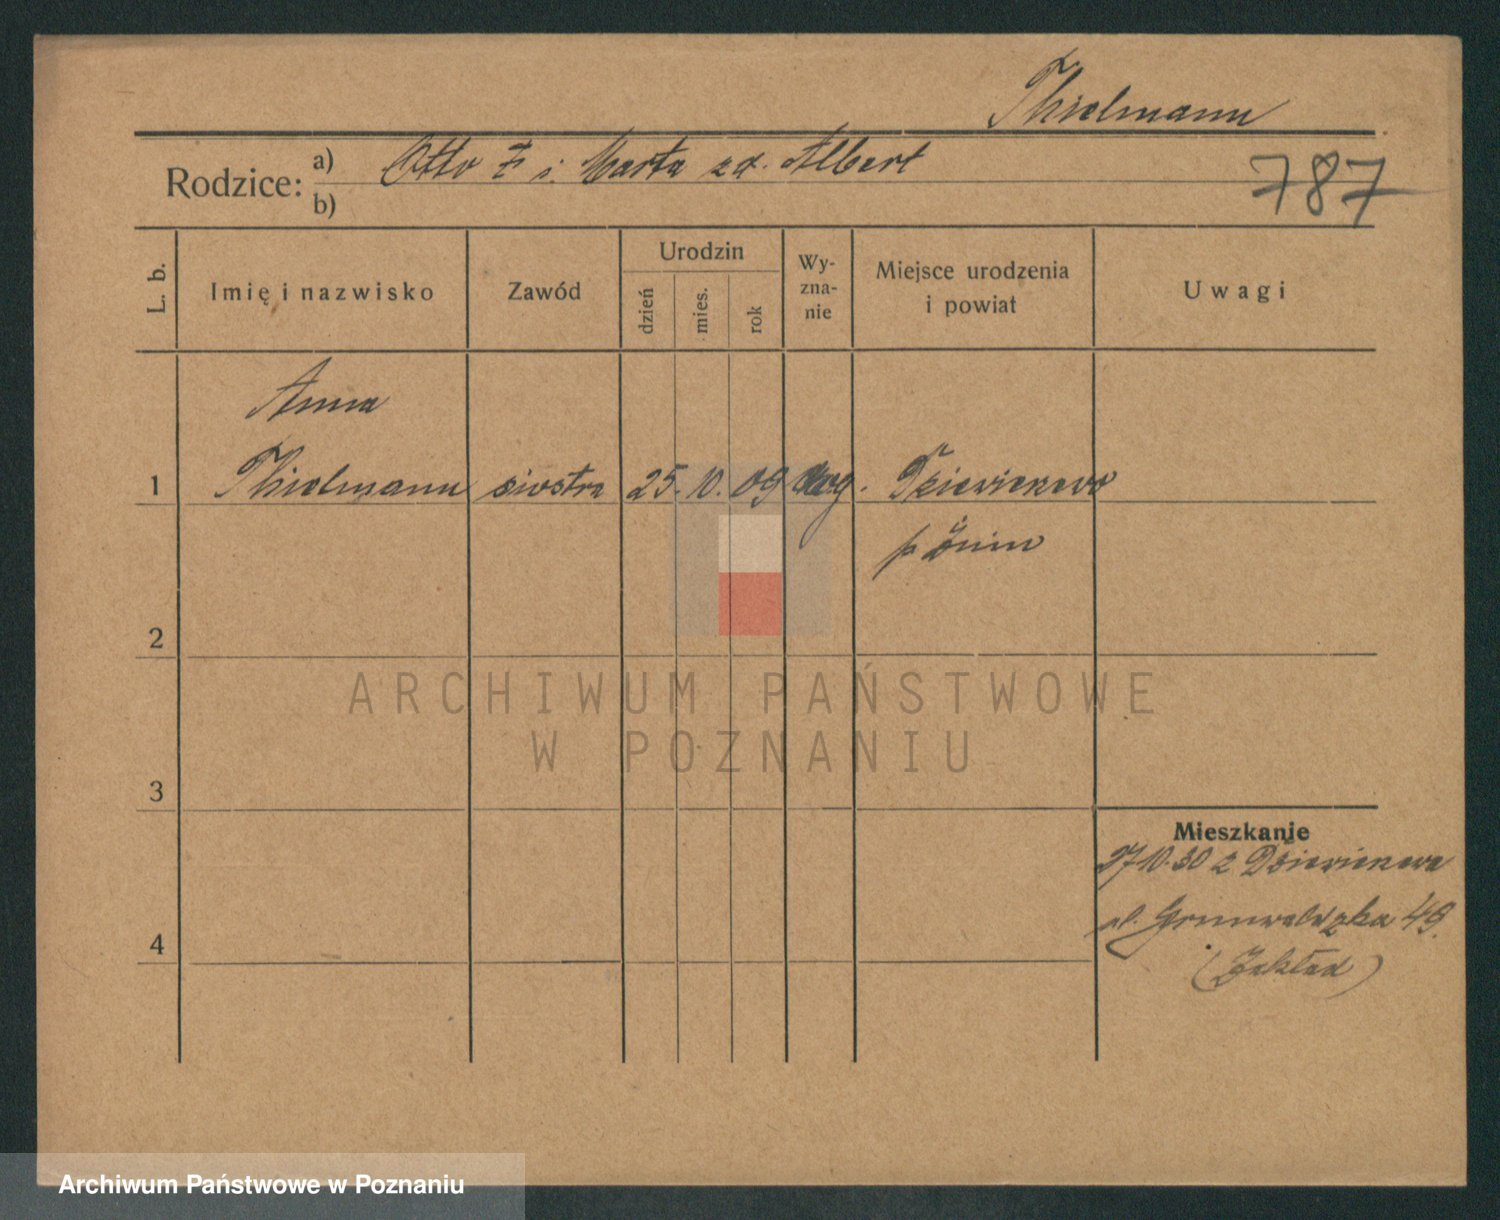 Thielmann
Rodzice: a) Otto T. i Marta zd. Albert
b)
787
L. b.
Imię i nazwisko
Zawód
Urodzin
dzień
mies.
rok
Wy-
zna-
nie
Miejsce urodzenia
i powiat
Uwagi
Anna
1 Thielmann siostra 25. 10. 09 ewg.
p. Żnin
2
3
4
Mieszkanie
27 10. 30 z
ul. Grunwaldzka 49.
(Zakład)
ARCHIWUM PAŃSTWOWE
W POZNANIU
Archiwum Państwowe w Poznaniu